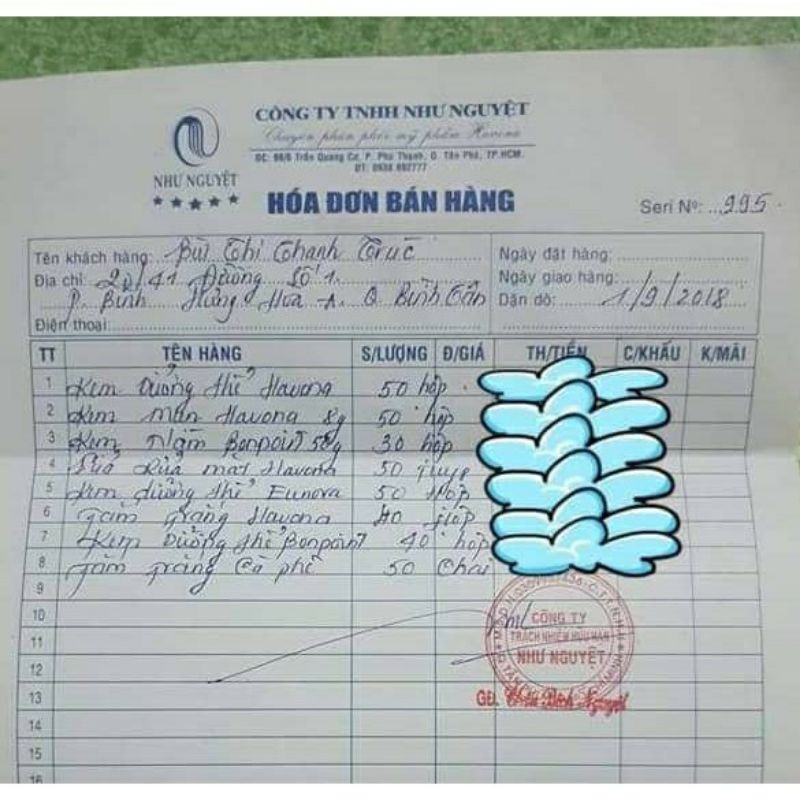 CÔNG TY TNHH NHƯ NGUYỆT
Chuyên phân phối mỹ phẩm Havona
ĐC: 66/6 Trần Quang Cơ, P. Phú Thạnh, Q. Tân Phú, TP.HCM.
NHƯ NGUYỆT
HÓA ĐƠN BÁN HÀNG
Seri Nº: 995
Tên khách hàng: Bùi Thị Thanh Trúc
Địa chỉ: 20/41 Đường Số 1.
P. Bình Hưng Hòa A. Q Bình Tân
Điện thoại:
Ngày đặt hàng:
Ngày giao hàng:
Dặn dò: 1/9/2018
TT TÊN HÀNG S/LƯỢNG Đ/GIÁ TH/TIỀN C/KHẤU K/MÃI
1 Kem Dưỡng thể Havona 50 hộp
2 Kem mụn Havona 8g 50 hộp
3 Kem Nám Bonpoint 50g 30 hộp
4 Sữa Rửa mặt Havona 50
5 Kem dưỡng thể Eunova 50 hộp
6 Tắm trắng Havona 40 hộp
7 Kem Dưỡng thể Bonpoint 40 hộp
8 Tắm trắng Cà phê 50 Chai
9
10
11
12
13
14
15
16
CÔNG TY
TRÁCH NHIỆM HỮU HẠN
NHƯ NGUYỆT
GĐ. Bích Nguyệt